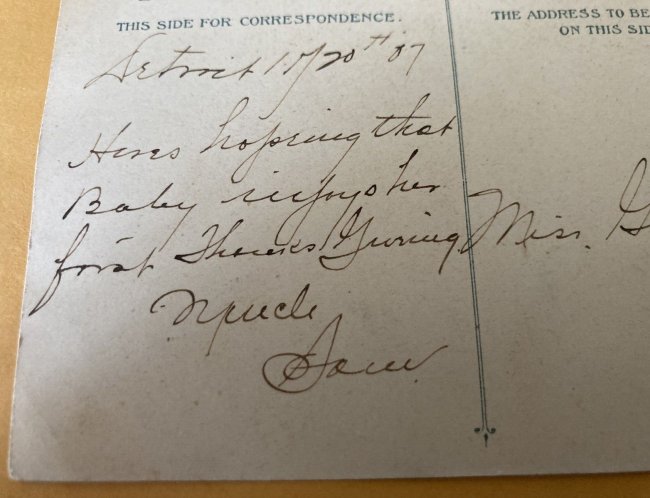 THIS SIDE FOR CORRESPONDENCE.
THE ADDRESS TO BE
ON THIS SID
Detroit 11/20th 07
Heres hopeing that
Baby injoys her
first Thanks Giving
Miss. G
Uncle
Sam